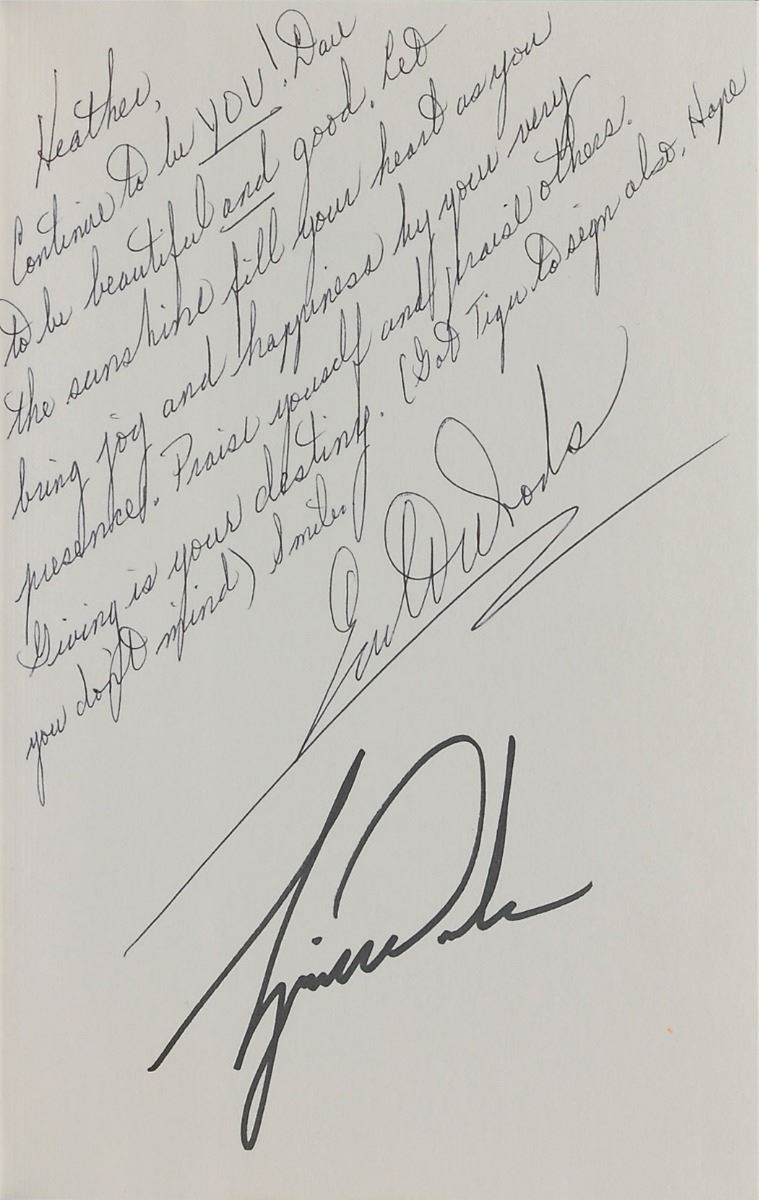 Heather,
Continue to be YOU! Dare
to be beautiful and good. Let
the sunshine fill your heart as you
bring joy and happiness by your very
presence. Praise yourself and praise others.
Giving is your destiny. (Got Tiger to sign also. Hope
you don't mind) Smile.
Earl D Woods
Tiger Woods